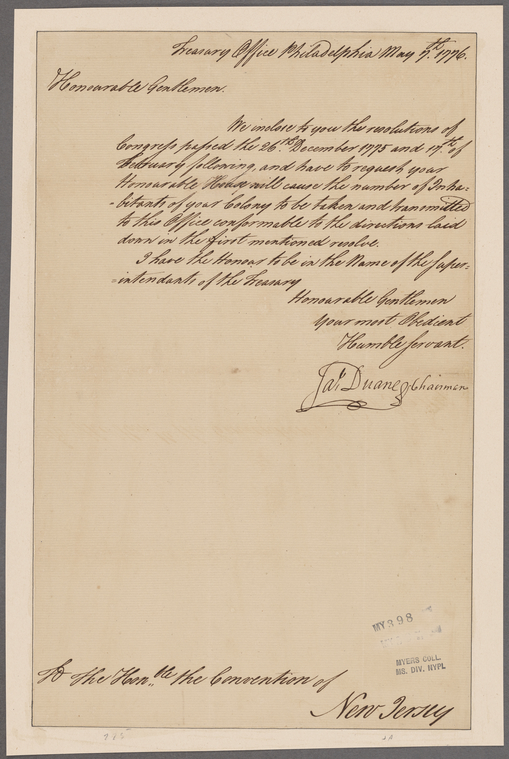 Treasury Office Philadelphia May 7.th 1776.
Honourable Gentlemen.
We inclose to you the resolutions of
Congress passed the 26.th December 1775 and 17.th of
February following, and have to request your
Honourable House will cause the number of Inha-
-bitants of your Colony to be taken and transmitted
to this Office conformable to the directions laid
down in the first mentioned resolve.
I have the Honour to be in the Name of the Super-
=intendants of the Treasury
Honourable Gentlemen
Your most Obedient
Humble Servant.
Jas Duane Chairman
MY398
MYERS COLL.
MS. DIV. NYPL
To the Hon.ble the Convention of
New Jersey